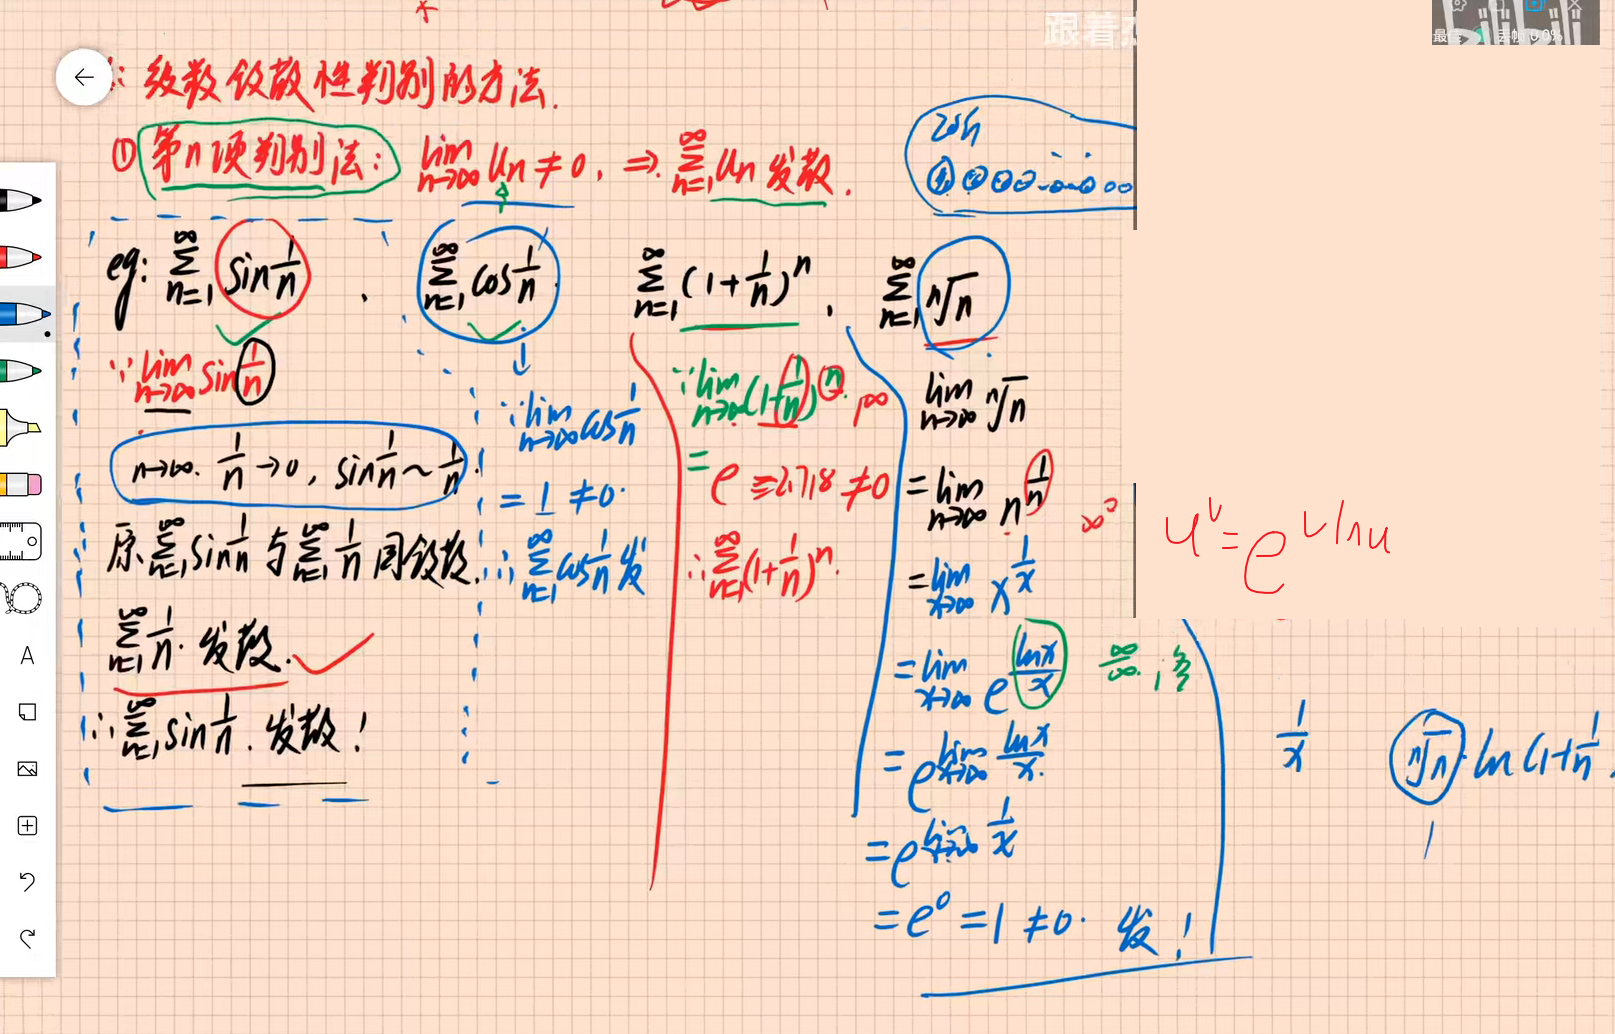 跟着
最佳 丢帧 0.0%
: 级数敛散性判别的方法.
① 第n项判别法: lim n→∞ Un ≠ 0, ⇒ ∞ Σ n=1 Un 发散.
eg: ∞ Σ n=1 sin 1/n , ∞ Σ n=1 cos 1/n . ∞ Σ n=1 (1+1/n)^n , ∞ Σ n=1 ⁿ√n
∵ lim n→∞ sin 1/n
n→∞. 1/n →0, sin 1/n ~ 1/n.
原 ∞ Σ n=1 sin 1/n 与 ∞ Σ n=1 1/n 同敛散.
∞ Σ n=1 1/n. 发散.
∴ ∞ Σ n=1 sin 1/n. 发散!
∵ lim n→∞ cos 1/n
= 1 ≠0.
∴ ∞ Σ n=1 cos 1/n 发
∵ lim n→∞ (1+1/n)^n. 1^∞
= e ≈2.718 ≠0
∴ ∞ Σ n=1 (1+1/n)^n.
lim n→∞ ⁿ√n
= lim n→∞ n^(1/n) ∞⁰
= lim x→∞ x^(1/x)
= lim x→∞ e^(lnx/x) ∞/∞.
= e^(lim x→∞ lnx/x.)
= e^(lim x→∞ 1/x)
= e⁰ =1 ≠0. 发!
u^v = e^(v ln u)
1/x
ⁿ√n · ln(1+1/n
1
A